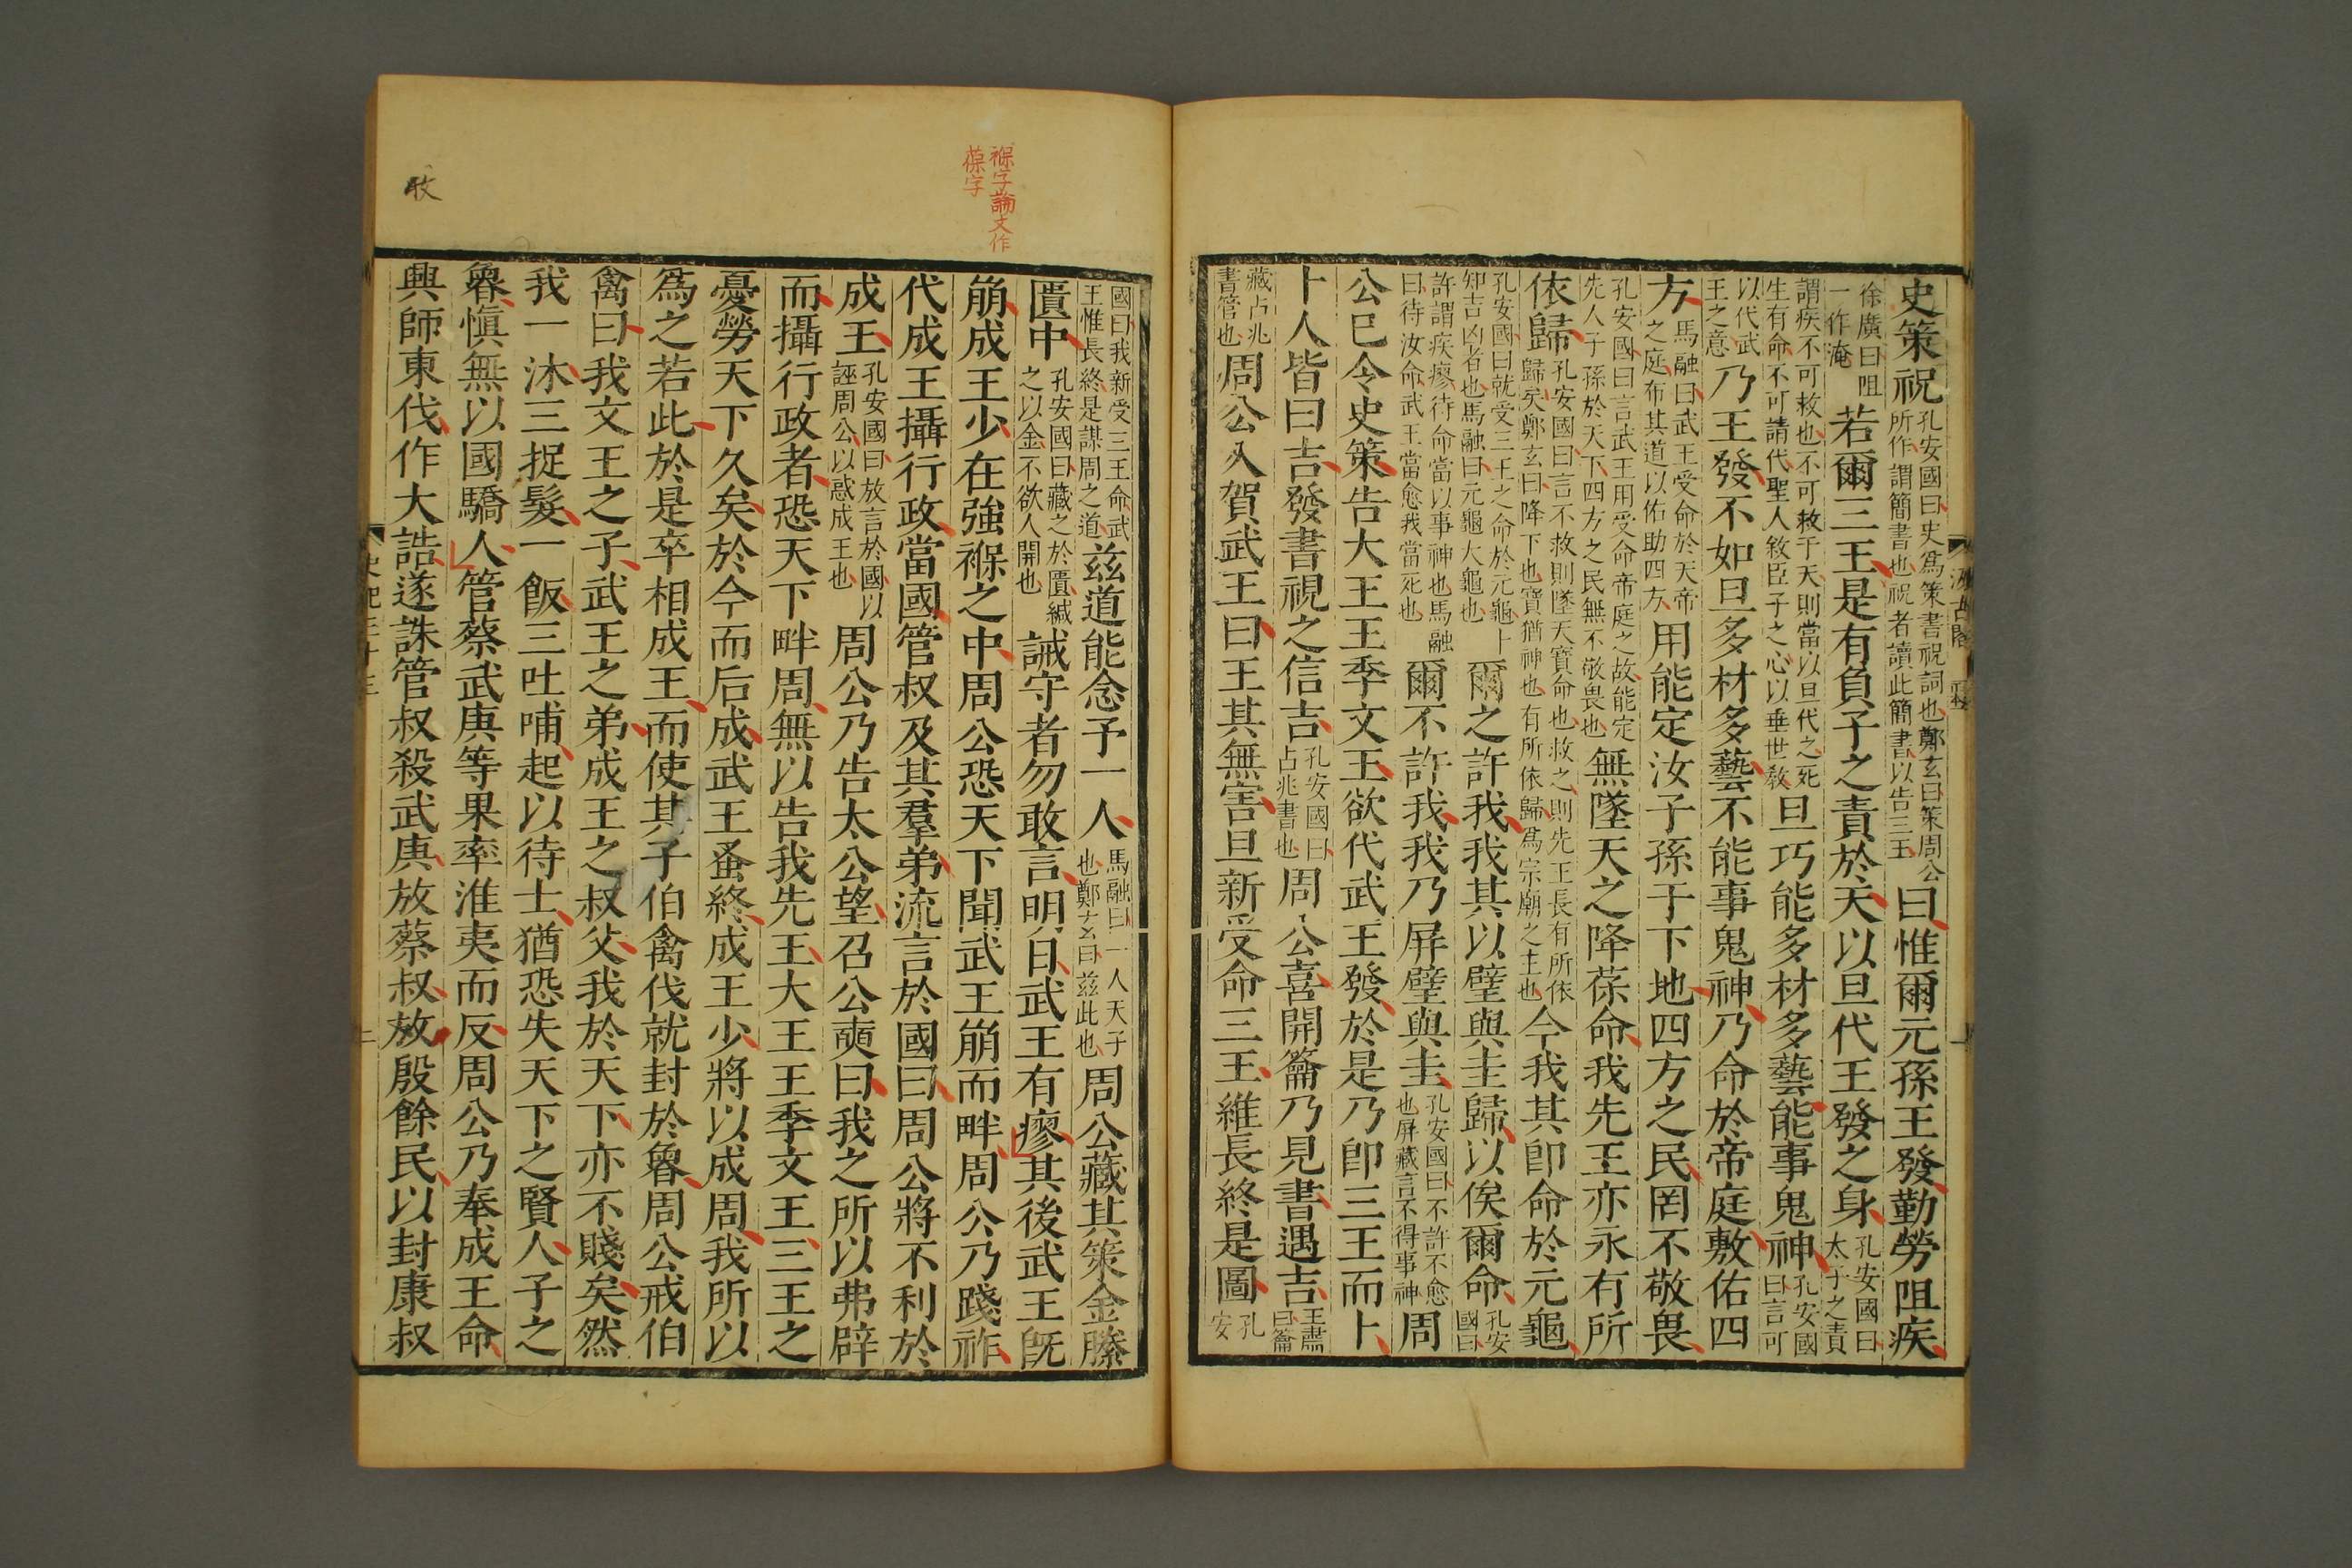 史策祝孔安國曰史爲策書祝詞也鄭玄曰策周公所作謂簡書也祝者讀此簡書以告三王曰惟爾元孫王發勤勞阻疾
徐廣曰阻一作淹若爾三王是有負子之責於天以旦代王發之身孔安國曰太子之責
謂疾不可救也不可救于天則當以旦代之死生有命不可請代聖人敘臣子之心以垂世敎旦巧能多材多藝能事鬼神孔安國曰言可
以代武王之意乃王發不如旦多材多藝不能事鬼神乃命於帝庭敷佑四
方馬融曰武王受命於天帝之庭布其道以佑助四方用能定汝子孫于下地四方之民罔不敬畏
孔安國曰言武王用受命帝庭之故能定先人子孫於天下四方之民無不敬畏也無墜天之降葆命我先王亦永有所
依歸孔安國曰言不救則墜天寶命也救之則先王長有所依歸矣鄭玄曰降下也寶猶神也有所依歸爲宗廟之主也今我其卽命於元龜
孔安國曰就受三王之命於元龜卜知吉凶者也馬融曰元龜大龜也爾之許我我其以璧與圭歸以俟爾命孔安國曰
許謂疾瘳待命當以事神也馬融曰待汝命武王當愈我當死也爾不許我我乃屏璧與圭孔安國曰不許不愈也屏藏言不得事神周
公已令史策告大王王季文王欲代武王發於是乃卽三王而卜
卜人皆曰吉發書視之信吉孔安國曰占兆書也周公喜開籥乃見書遇吉王肅曰籥
藏占兆書管也周公入賀武王曰王其無害旦新受命三王維長終是圖孔安
汲古閣
國曰我新受三王命武王惟長終是謀周之道茲道能念予一人馬融曰一人天子也鄭玄曰茲此也周公藏其策金縢
匱中孔安國曰藏之於匱緘之以金不欲人開也誡守者勿敢言明日武王有瘳其後武王旣
崩成王少在強褓之中周公恐天下聞武王崩而畔周公乃踐祚
代成王攝行政當國管叔及其羣弟流言於國曰周公將不利於
成王孔安國曰放言於國以誣周公以惑成王也周公乃告太公望召公奭曰我之所以弗辟
而攝行政者恐天下畔周無以告我先王大王王季文王三王之
憂勞天下久矣於今而后成武王蚤終成王少將以成周我所以
爲之若此於是卒相成王而使其子伯禽伐就封於魯周公戒伯
禽曰我文王之子武王之弟成王之叔父我於天下亦不賤矣然
我一沐三捉髮一飯三吐哺起以待士猶恐失天下之賢人子之
魯愼無以國驕人管蔡武庚等果率淮夷而反周公乃奉成王命
興師東伐作大誥遂誅管叔殺武庚放蔡叔放殷餘民以封康叔
史記三十三
二
褓字論文作
葆字
收